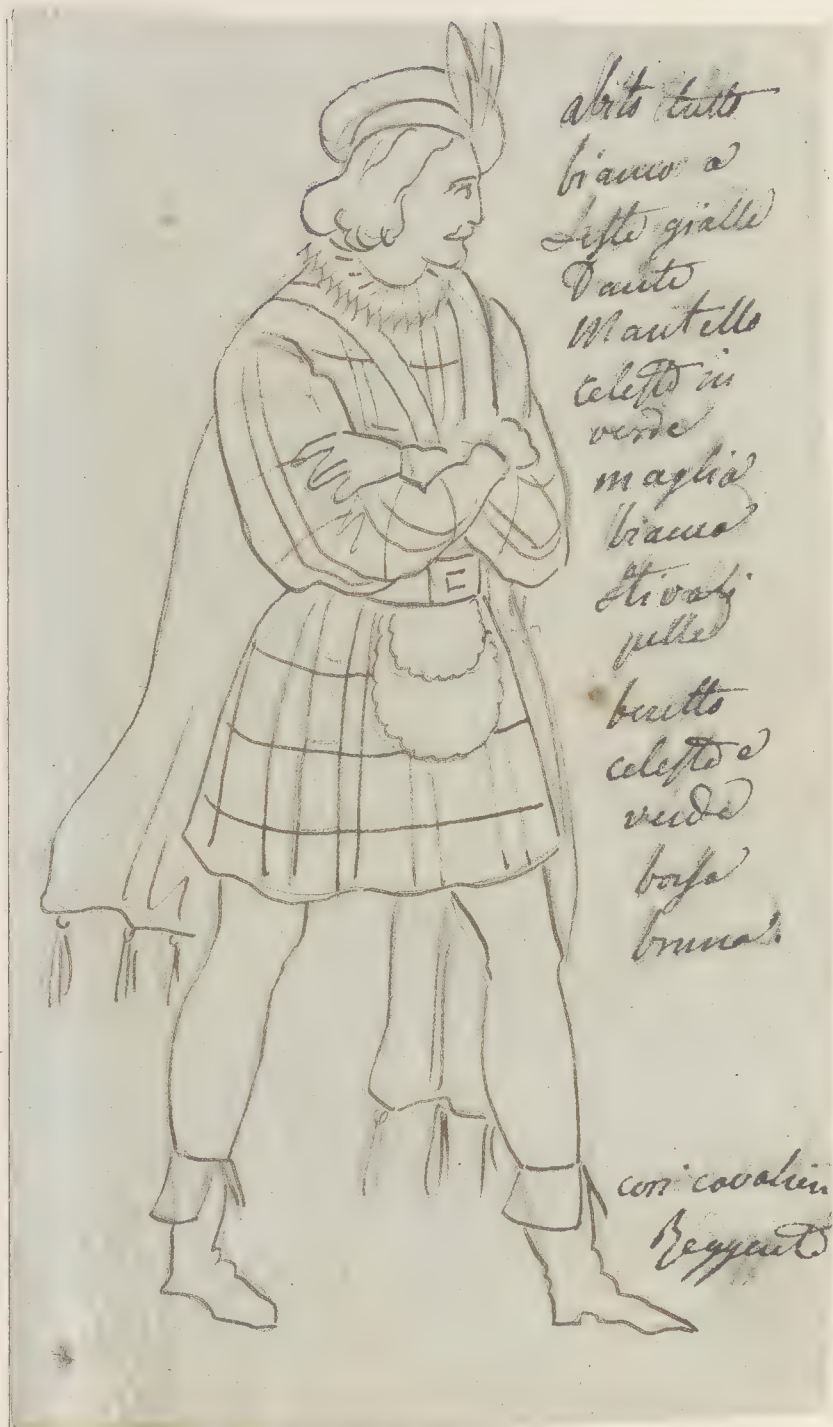 abito tutto
bianco a
Leste gialle
Dante
Mantello
celeste in
verde
maglia
bianca
Stivali
pelle
beretto
celeste e
verde
borsa
bruna.
cori cavalieri
Reggente